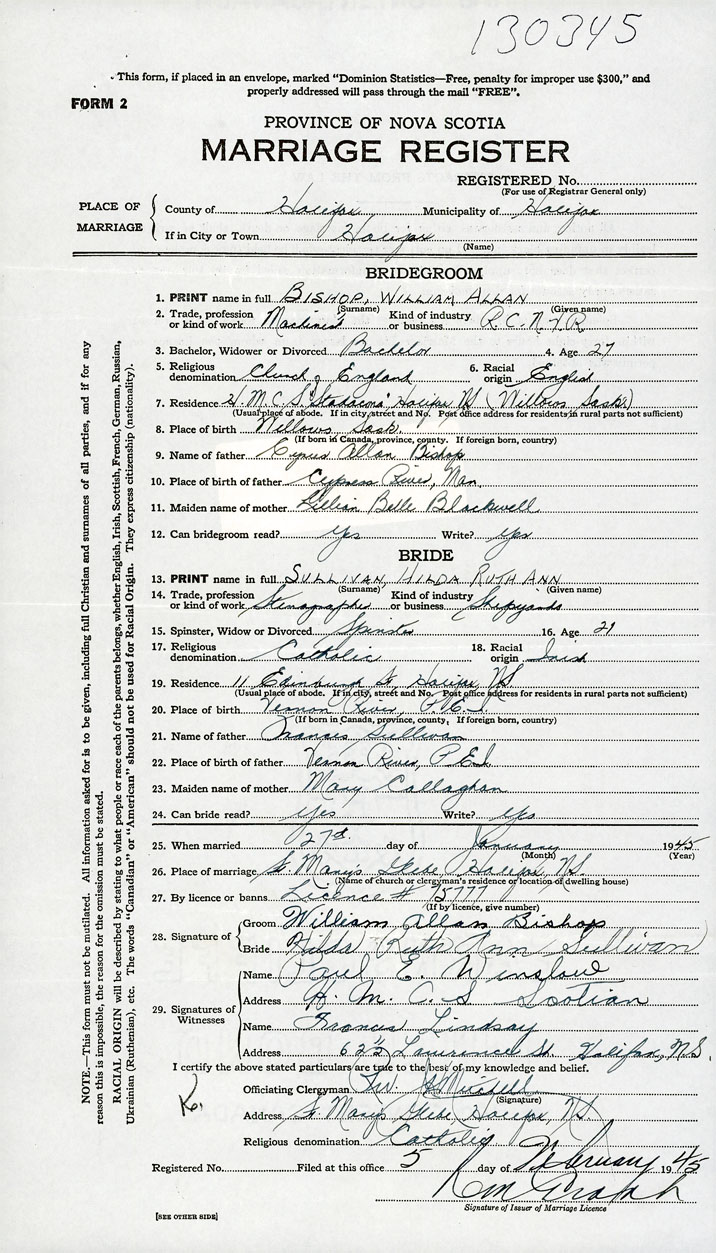 130345
This form, if placed in an envelope, marked "Dominion Statistics—Free, penalty for improper use $300," and
properly addressed will pass through the mail "FREE".
FORM 2
PROVINCE OF NOVA SCOTIA
MARRIAGE REGISTER
REGISTERED No.
(For use of Registrar General only)
PLACE OF MARRIAGE
County of Halifax Municipality of Halifax
If in City or Town Halifax
(Name)
BRIDEGROOM
1. PRINT name in full BISHOP, WILLIAM ALLAN
(Surname) (Given name)
2. Trade, profession or kind of work Machinist Kind of industry or business R.C.N.V.R
3. Bachelor, Widower or Divorced Bachelor 4. Age 27
5. Religious denomination Church of England 6. Racial origin English
7. Residence H.M.C.S. "Stadacona", Halifax NS (Willows Sask)
(Usual place of abode. If in city, street and No. Post office address for residents in rural parts not sufficient)
8. Place of birth Willows Sask.
(If born in Canada, province, county. If foreign born, country)
9. Name of father Cyrus Allan Bishop
10. Place of birth of father Cypress River, Man.
11. Maiden name of mother Lillian Belle Blackwell
12. Can bridegroom read? Yes Write? Yes
BRIDE
13. PRINT name in full SULLIVAN, HILDA RUTH ANN
(Surname) (Given name)
14. Trade, profession or kind of work Stenographer Kind of industry or business Shipyards
15. Spinster, Widow or Divorced Spinster 16. Age 21
17. Religious denomination Catholic 18. Racial origin Irish
19. Residence 11 Edinburgh St, Halifax, NS
(Usual place of abode. If in city, street and No. Post office address for residents in rural parts not sufficient)
20. Place of birth Vernon River, P.E.I.
(If born in Canada, province, county, If foreign born, country)
21. Name of father Francis Sullivan
22. Place of birth of father Vernon River, P.E.I
23. Maiden name of mother Mary Callaghan
24. Can bride read? Yes Write? Yes
25. When married 27th day of January 1945
(Month) (Year)
26. Place of marriage St. Mary's Glebe, Halifax, NS.
(Name of church or clergyman's residence or location of dwelling house)
27. By licence or banns Licence # 75777
(If by licence, give number)
28. Signature of
Groom William Allan Bishop
Bride Hilda Ruth Ann Sullivan
29. Signatures of Witnesses
Name Paul E. Winslow
Address H. M. C. S Scotian
Name Francis Lindsay
Address 62½ Lawrence St. Halifax, N.S.
I certify the above stated particulars are true to the best of my knowledge and belief.
Officiating Clergyman Mitchell
(Signature)
Address St Mary's Glebe, Halifax, NS
Religious denomination Catholic
Registered No. Filed at this office 5 day of February 1945
Signature of Issuer of Marriage Licence
[SEE OTHER SIDE]
NOTE.—This form must not be mutilated. All information asked for is to be given, including full Christian and surnames of all parties, and if for any
reason this is impossible, the reason for the omission must be stated.
RACIAL ORIGIN will be described by stating to what people or race each of the parents belongs, whether English, Irish, Scottish, French, German, Russian,
Ukrainian (Ruthenian), etc. The words "Canadian" or "American" should not be used for Racial Origin. They express citizenship (nationality).